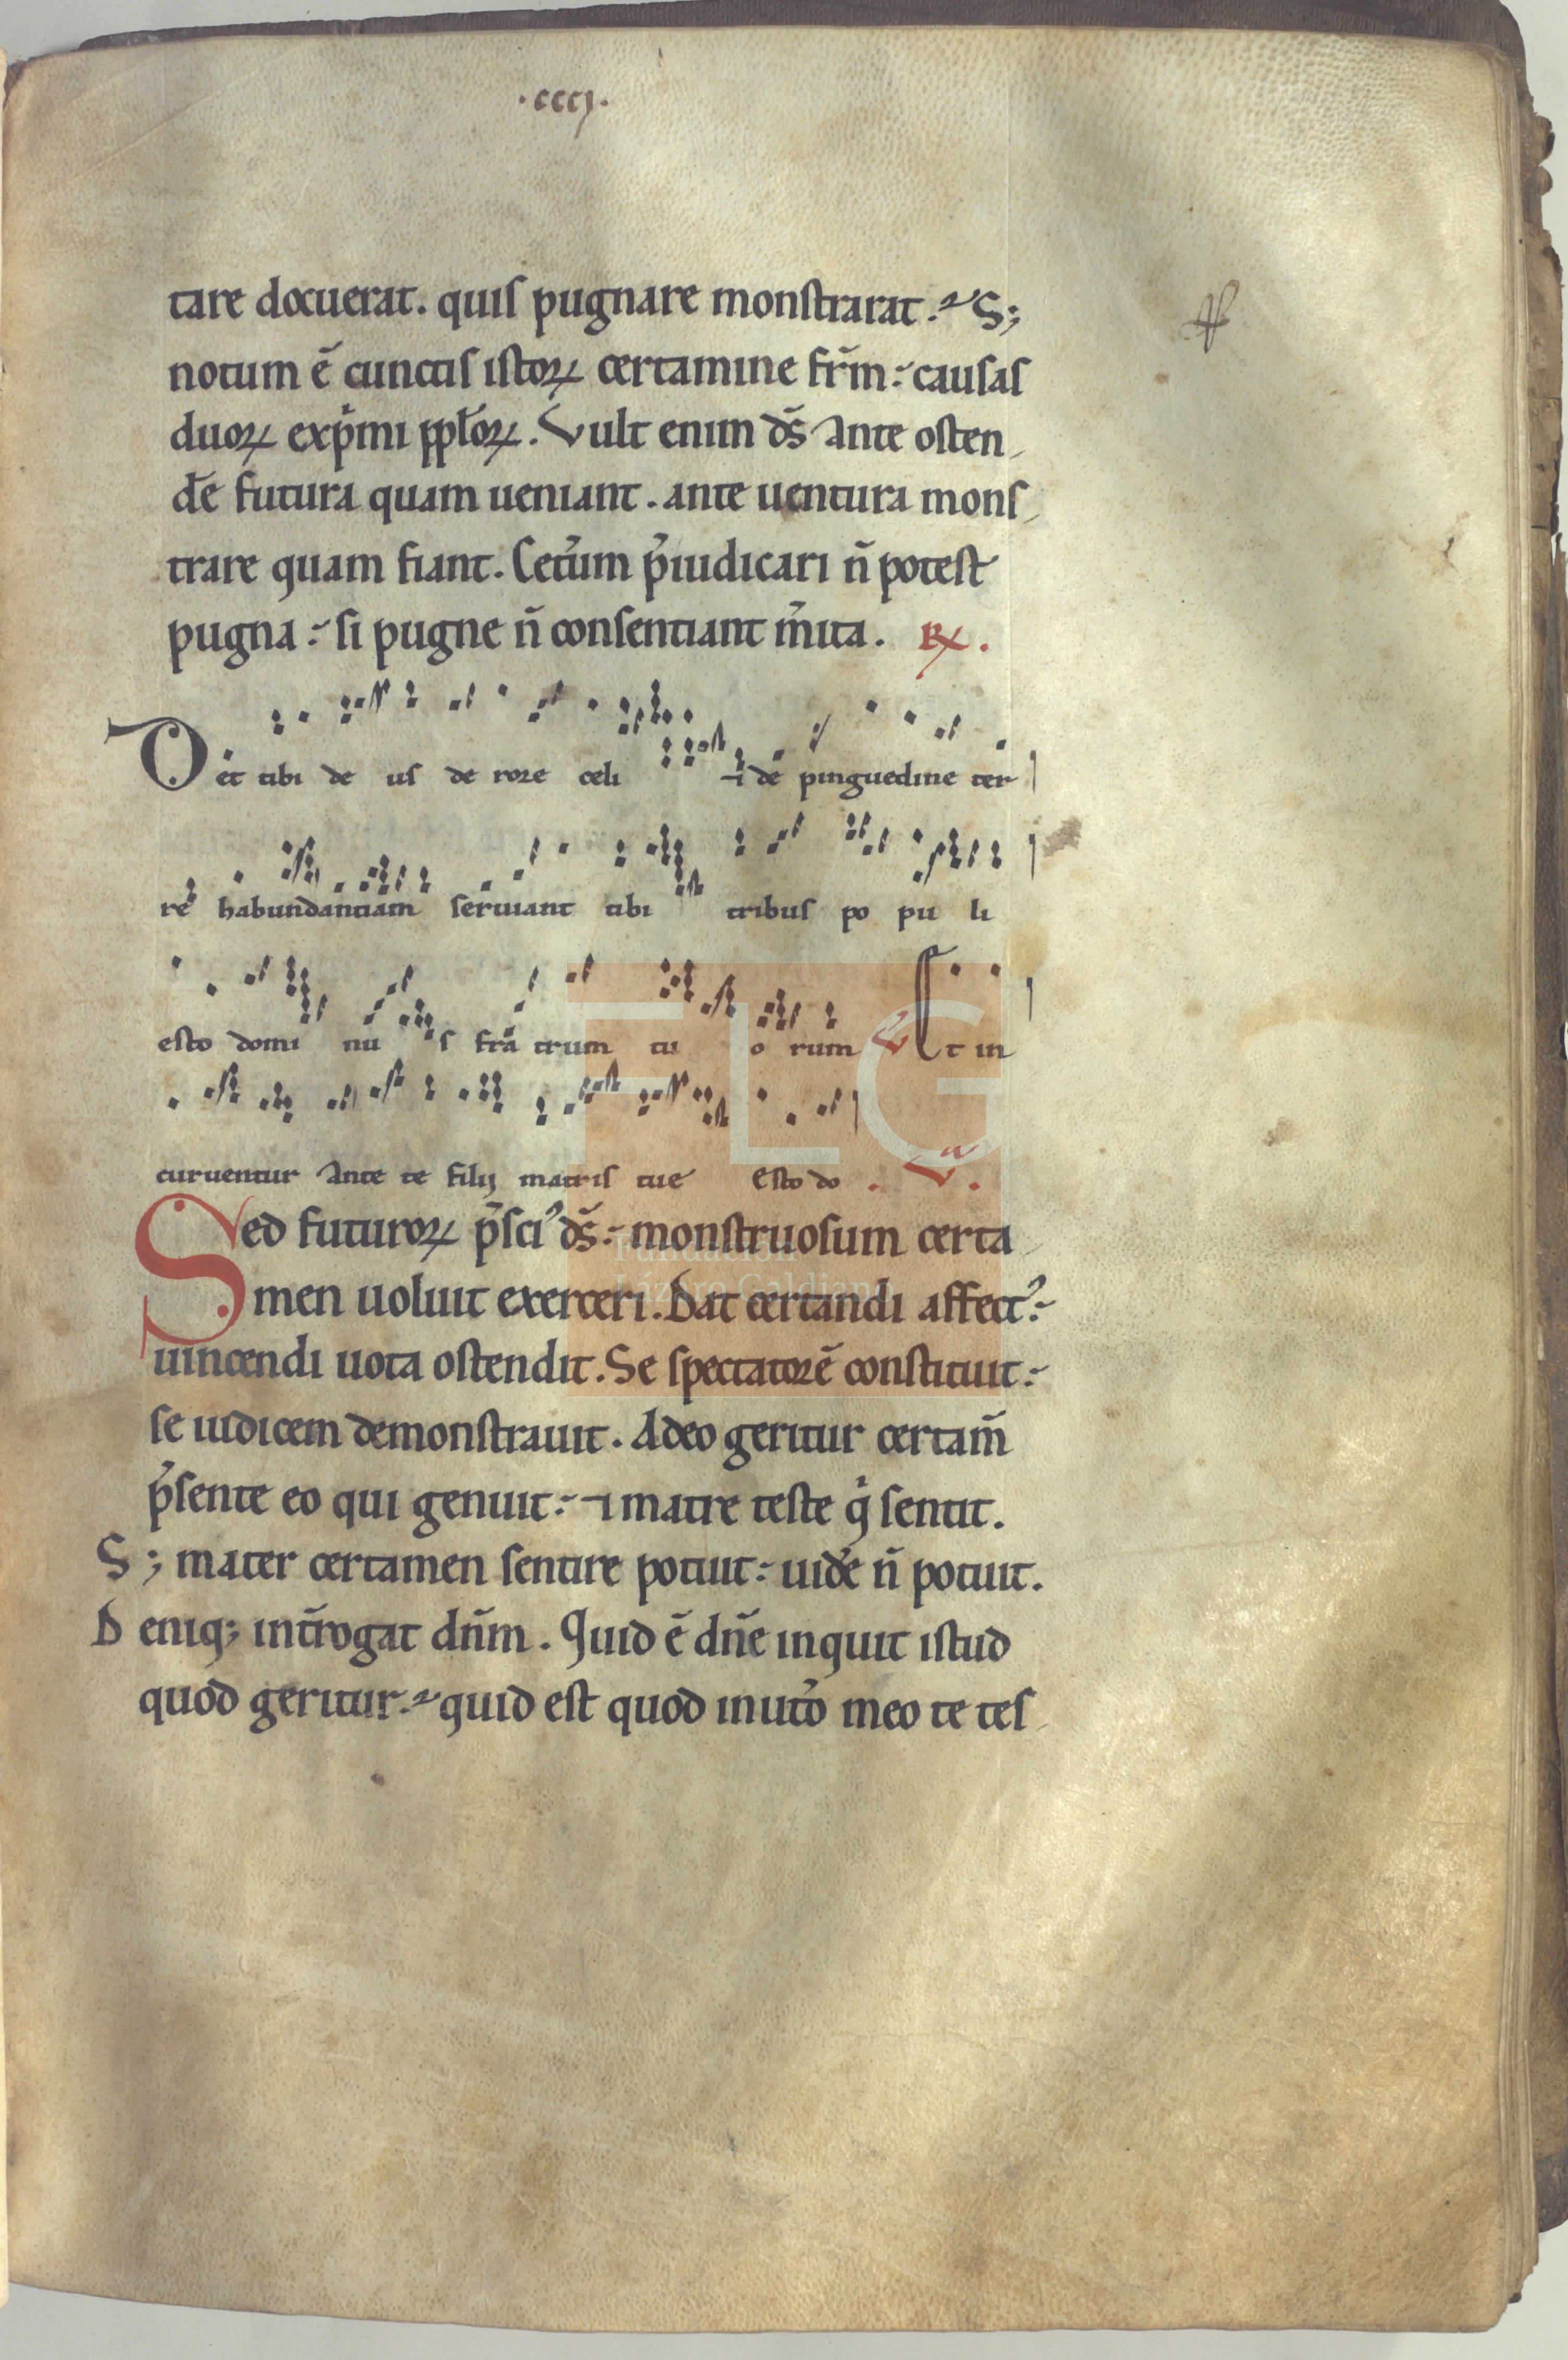 ·cccj·
tare docuerat. quis pugnare monstrarat.~ S;
notum ē cunctis istoꝝ certamine fr̄m:~ causas
duoꝝ expͥmi pplōꝝ. Vult enim ds̄ ante osten
dē futura quam ueniant. ante uentura mons
trare quam fiant. Cet̄um p̄iudicari n̄ potest
pugna:~ si pugne n̄ consentiant m̄ita. R̷.
Det tibi de us de rore celi ⁊ de pinguedine ter
re habundantiam seruiant tibi tribus po pu li
esto domi nu s fra trum tu o rum V Et in
curuentur ante te filij matris tue Esto do . V̷ .
Sed futuroꝝ p̄sciꝰ ds̄:~ monstruosum certa
men uoluit exerceri. Dat certandi affectꝰ:~
uincendi uota ostendit. Se spectatorē constituit:~
se iudicem demonstrauit. Adeo geritur certam̄
p̄sente eo qui genuit:~ ⁊ matre teste qͥ sentit.
S; mater certamen sentire potuit:~ uidē n̄ potuit.
Deniq; int̄rogat dn̄m. Quid ē dn̄e inquit istud
quod geritur.~ quid est quod inut̄o meo te tes
FLG
Fundación
Lázaro Galdiano